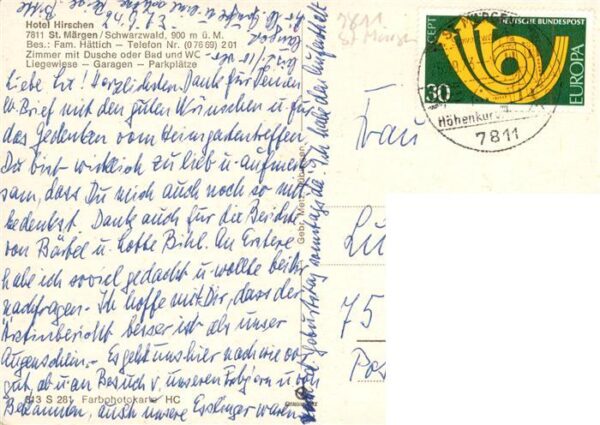 Hotel Hirschen
7811 St. Märgen/Schwarzwald, 900 m ü. M.
Bes.: Fam. Hättich – Telefon Nr. (0 76 69) 2 01
Zimmer mit Dusche oder Bad und WC
Liegewiese – Garagen – Parkplätze
24.9.73
Herzlichsten Dank für Deinen
Brief mit den guten Wünschen u. für
das Gedenken vom Heimgartentreffen
Du bist wirklich zu lieb u. aufmerk
sam, dass Du mich auch noch so mit
bedenkst. Dank auch für die Berichte
von Bärbel u. Lotte Bihl. An Erstere
habe ich soviel gedacht u. wollte bei Dir
nachfragen. - Ich hoffe mit Dir, dass der
Ärztinbericht besser ist als unser
Augenschein. - Es geht uns hier nach wie vor
gut, ab u. an Besuch v. unseren u. von
Bekannten, auch unsere Esslinger waren
S 281 Farbophotokarte HC
Gebr. Metz, Tübingen
7811
St. Märgen
Frau
75
SEPT
DEUTSCHE BUNDESPOST
30
EUROPA
Höhenkur
7811